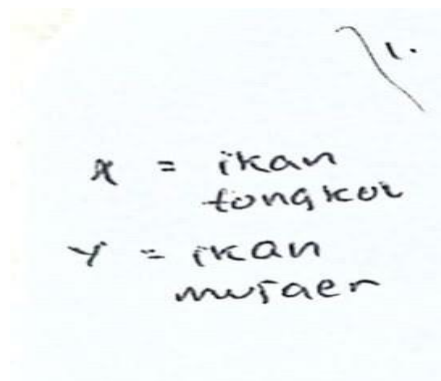 1.
X = ikan
tongkol
Y = ikan
mujaer